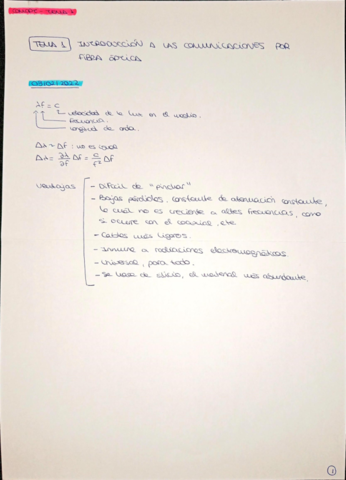 TEMA 1 INTRODUCCIÓN A LAS COMUNICACIONES POR
FIBRA ÓPTICA
λf = c
velocidad de la luz en el medio.
frecuencia.
longitud de onda.
Δλ = Δf : no es igual
Δλ = ∂λ/∂f Δf = c/f² Δf
Ventajas
- Difícil de "pinchar"
- Bajas pérdidas, constante de atenuación constante,
lo cual no es creciente a altas frecuencias, como
sí ocurre con el coaxial, etc
- Cables más ligeros.
- Inmune a radiaciones electromagnéticas
- Universal, para todo.
- Se hace de silicio, el material más abundante.
1